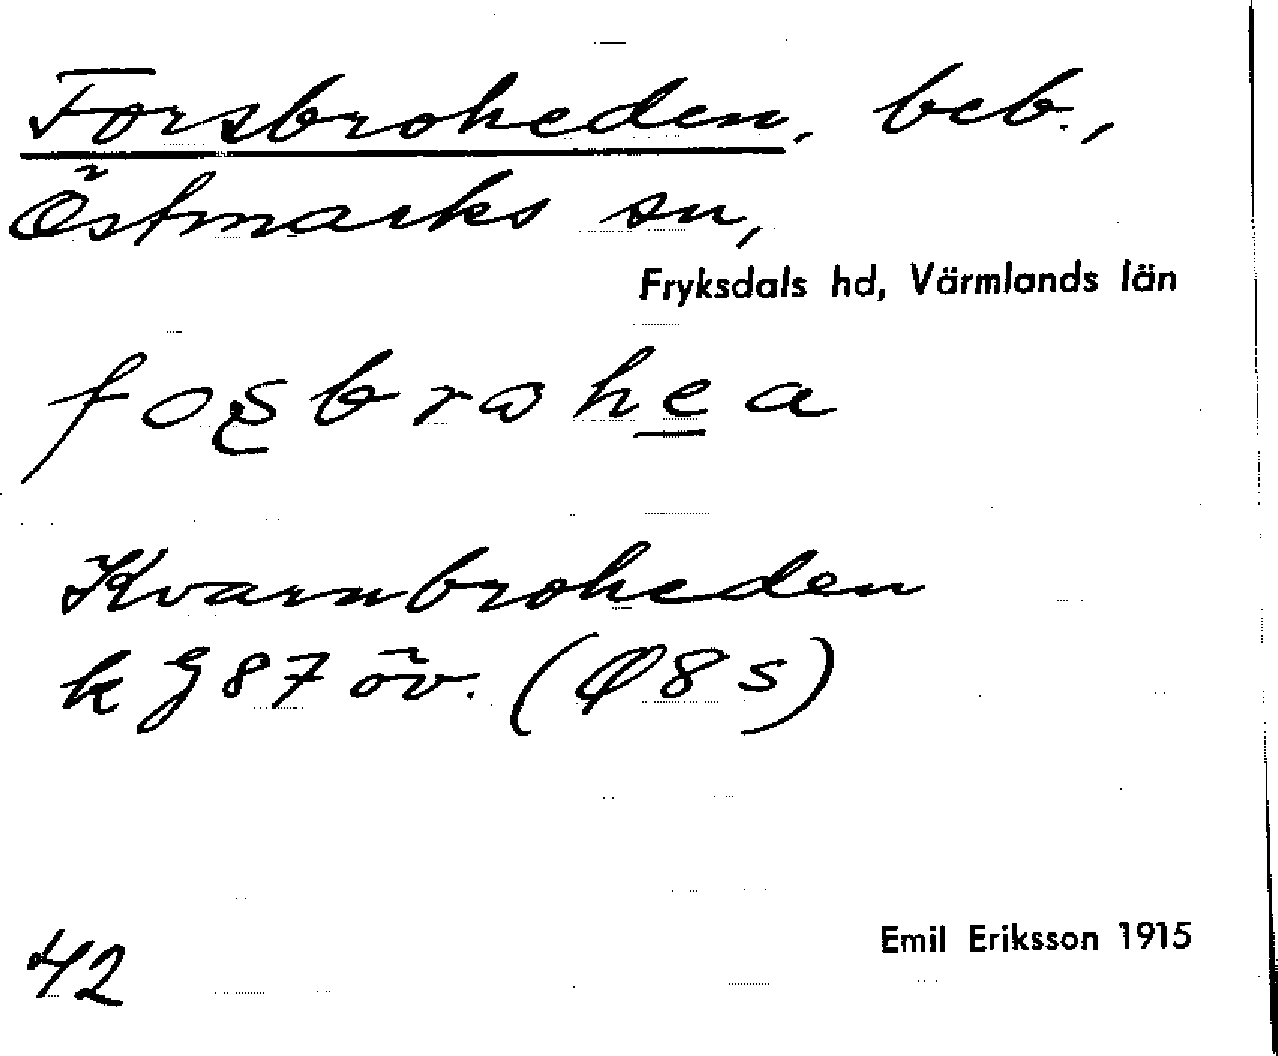 Forsbroheden, beb.,
Östmarks sn,
Fryksdals hd, Värmlands län
Kvarnbroheden
öv. (Ø8s)
42
Emil Eriksson 1915